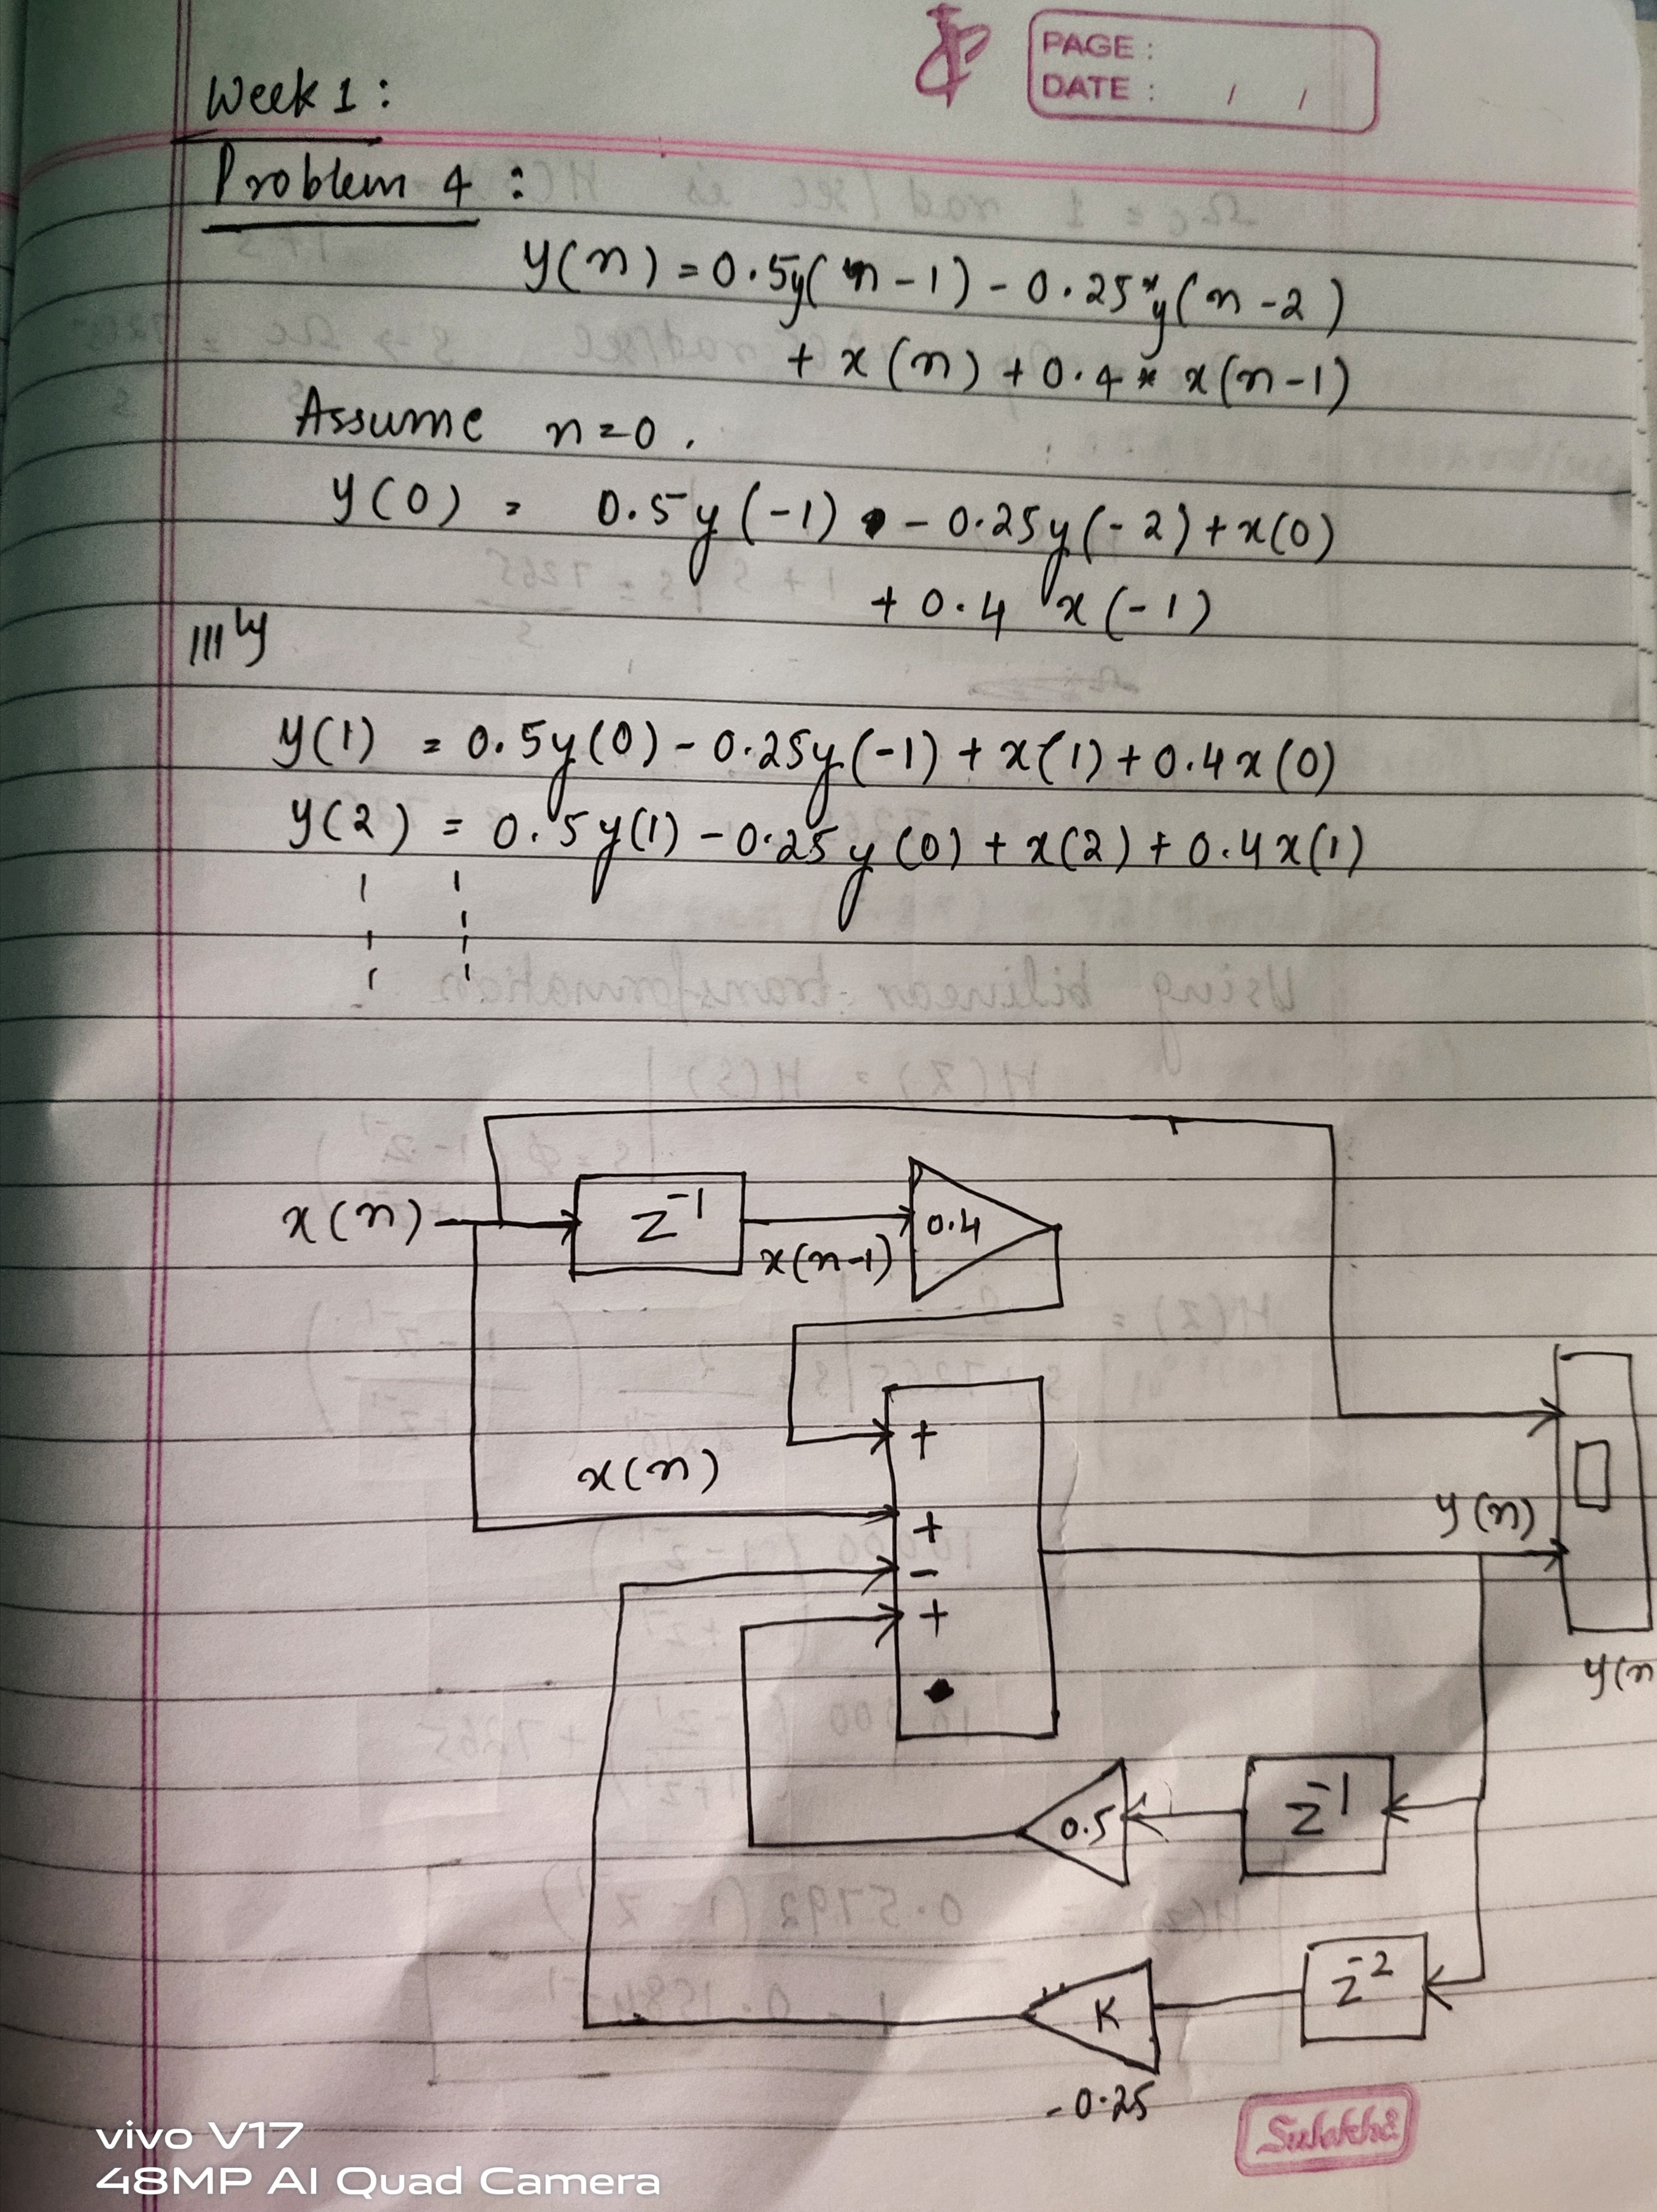 PAGE :
DATE : / /
Week 1 :
Problem 4 :
y(n) = 0.5y(n-1) - 0.25*y(n-2)
+ x(n) + 0.4 * x(n-1)
Assume n=0.
y(0) = 0.5y(-1) - 0.25y(-2) + x(0)
+ 0.4 x(-1)
|||ly
y(1) = 0.5y(0) - 0.25y(-1) + x(1) + 0.4x(0)
y(2) = 0.5y(1) - 0.25y(0) + x(2) + 0.4x(1)
x(n)
z⁻¹
x(n-1)
0.4
+
x(n)
+
-
+
y(n)
y(n
0.5
z⁻¹
K
z⁻²
-0.25
vivo V17
48MP AI Quad Camera